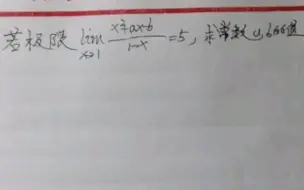 若极限 lim x→1 x²+ax+b / 1-x =5, 求常数a,b的值